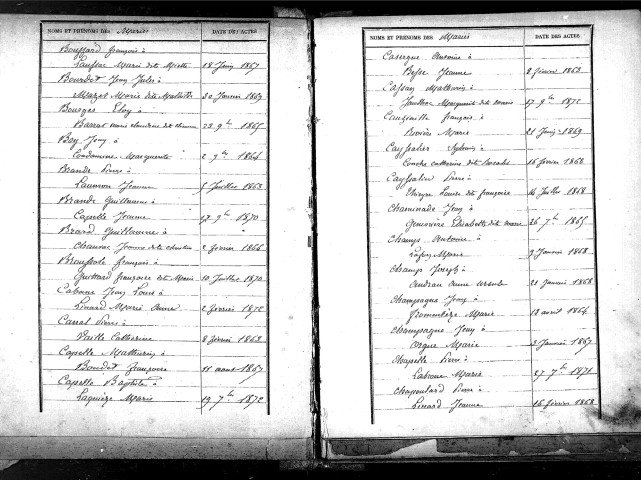 NOMS ET PRÉNOMS DES Mariés DATE DES ACTES
Bouffard françois à
Lanssac Marie dite Miette 18 Juin 1867
Bourdet Jean Jules à
Mazet Marie dite Mathilde 20 Janvier 1869
Bourges Eloy à
Barrat marie 28 9bre 1865
Boy Jean à
Condamine Marguerite 2 7bre 1864
Brande Pierre à
Laumon Jeanne 5 Juillet 1868
Brande Guillaume à
Capelle Jeanne 17 9bre 1870
Brard Guillaume à
Chausse Jeanne dite christine 2 février 1866
françois à
Guittard françoise dite Marie 10 Juillet 1870
Cabanne Jean Louis à
Linard Marie Anne 2 février 1872
Canal Pierre à
Catherine 8 février 1863
Capelle Mathurin à
Boudet françoise 11 aout 1867
Capelle Baptiste à
Laquièze Marie 19 7bre 1872
NOMS ET PRÉNOMS DES Mariés DATE DES ACTES
Casergue Antoine à
Besse Jeanne 2 février 1863
Cassan Mathurin à
Marguerite dite marie 17 9bre 1872
françois à
Rivière Marie 21 Juin 1869
Cayssalier Sylvain à
Conche catherine dite 16 février 1866
Cayssalou Pierre à
Louise dite françoise 14 Juillet 1868
Chaminade Jean à
Genevière Elisabeth dite marie 26 7bre 1865
Champs Antoine à
Marie 9 Janvier 1868
Champs Joseph à
Audrau Anne Ursule 21 Janvier 1868
Champagne Jean à
Fromentèze Marie 18 avril 1864
Champagne Jean à
Orgue Marie 3 Janvier 1867
Chapelle Pierre à
Labanne Marie 27 7bre 1871
Chapoulard Pierre à
Linard Jeanne 16 février 1868